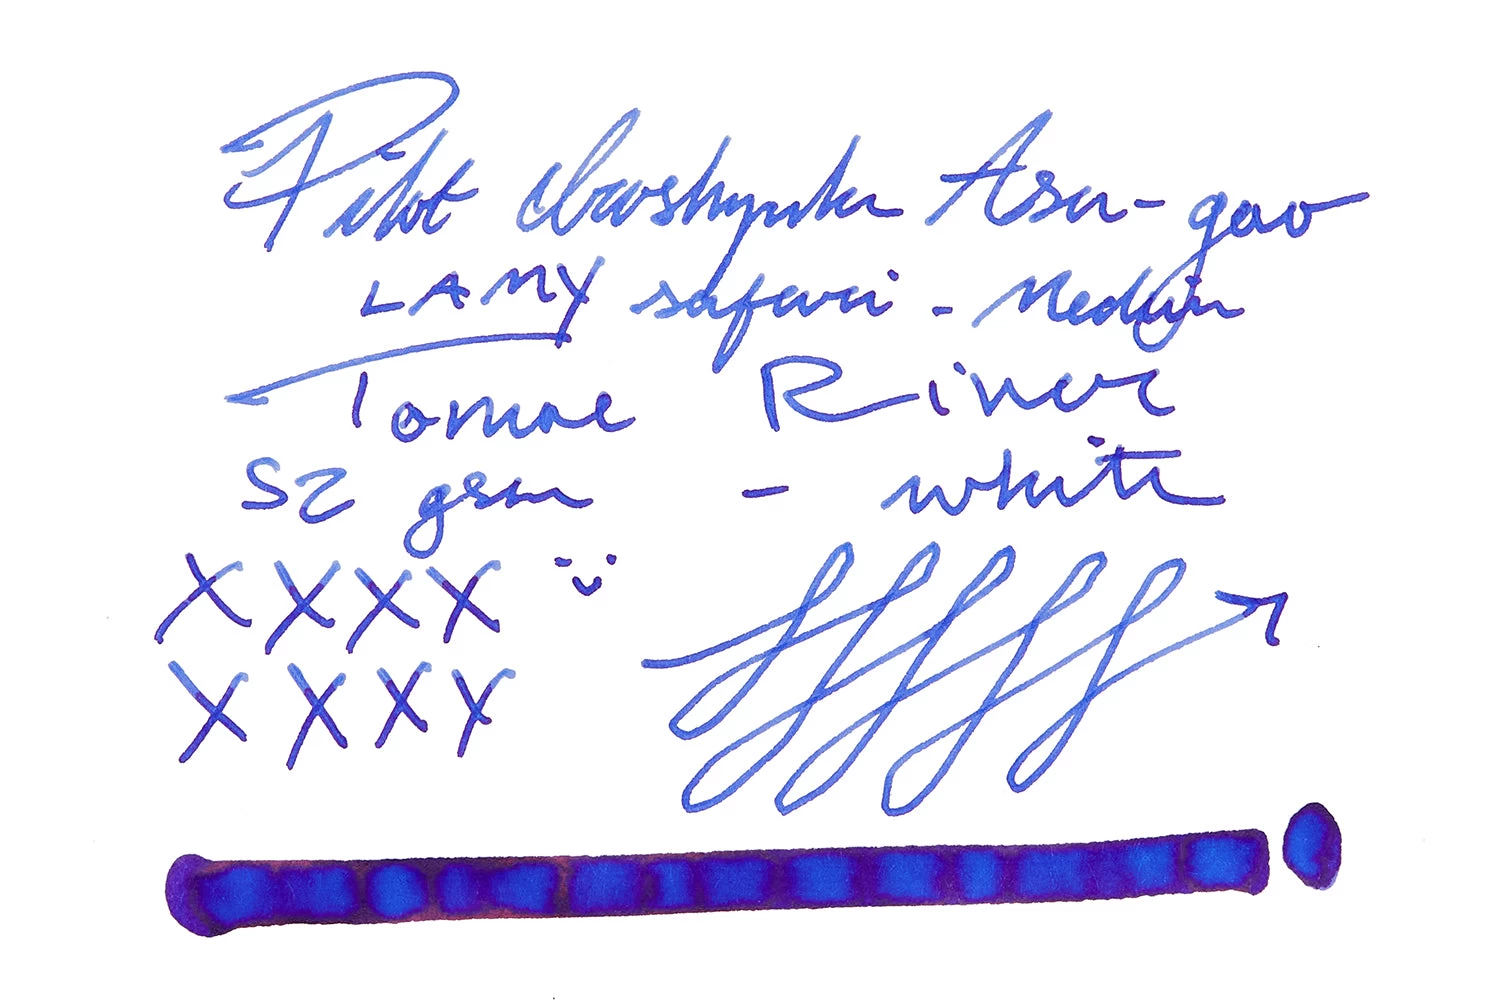 Pilot Iroshizuku Asa-gao
LAMY safari - Medium
Tomoe River
52 gsm - white
XXXX
XXXX